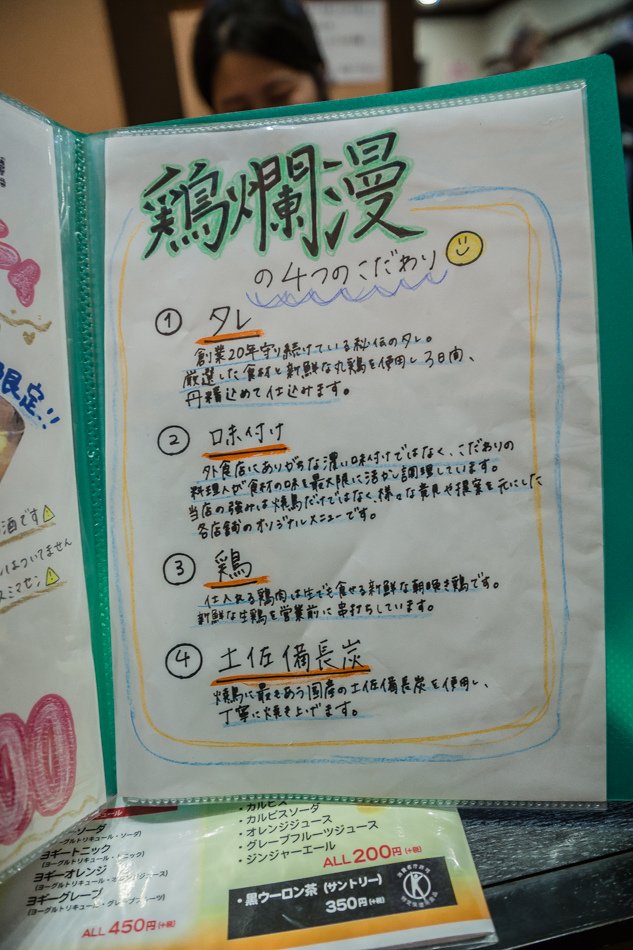 鶏爛漫
の4つのこだわり
① タレ
創業20年守り続けている秘伝のタレ。
厳選した食材と新鮮な丸鶏を使用し3日間、
丹精込めて仕込みます。
② 味付け
外食店にありがちな濃い味付けではなく、こだわりの
料理人が食材の味を最大限に活かし調理しています。
当店の強みは焼鳥だけではなく、様々な意見や提案を元にした
各店舗のオリジナルメニューです。
③ 鶏
仕入れる鶏肉は生でも食せる新鮮な朝挽き鶏です。
新鮮な生鶏を営業前に串打ちしています。
④ 土佐備長炭
焼鳥に最もあう国産の土佐備長炭を使用し、
丁寧に焼き上げます。
限定!!
酒です
はついてません
スミマセン
00
ソーダ
(ヨーグルトリキュール・ソーダ)
ヨギートニック
(ヨーグルトリキュール・トニック)
ヨギーオレンジ
ヨギーグレープ
(ヨーグルトリキュール・グレープフルーツ)
ALL 450円(+税)
・カルピス
・カルピスソーダ
・オレンジジュース
・グレープフルーツジュース
・ジンジャーエール
ALL 200円(+税)
・黒ウーロン茶(サントリー)
350円(+税)